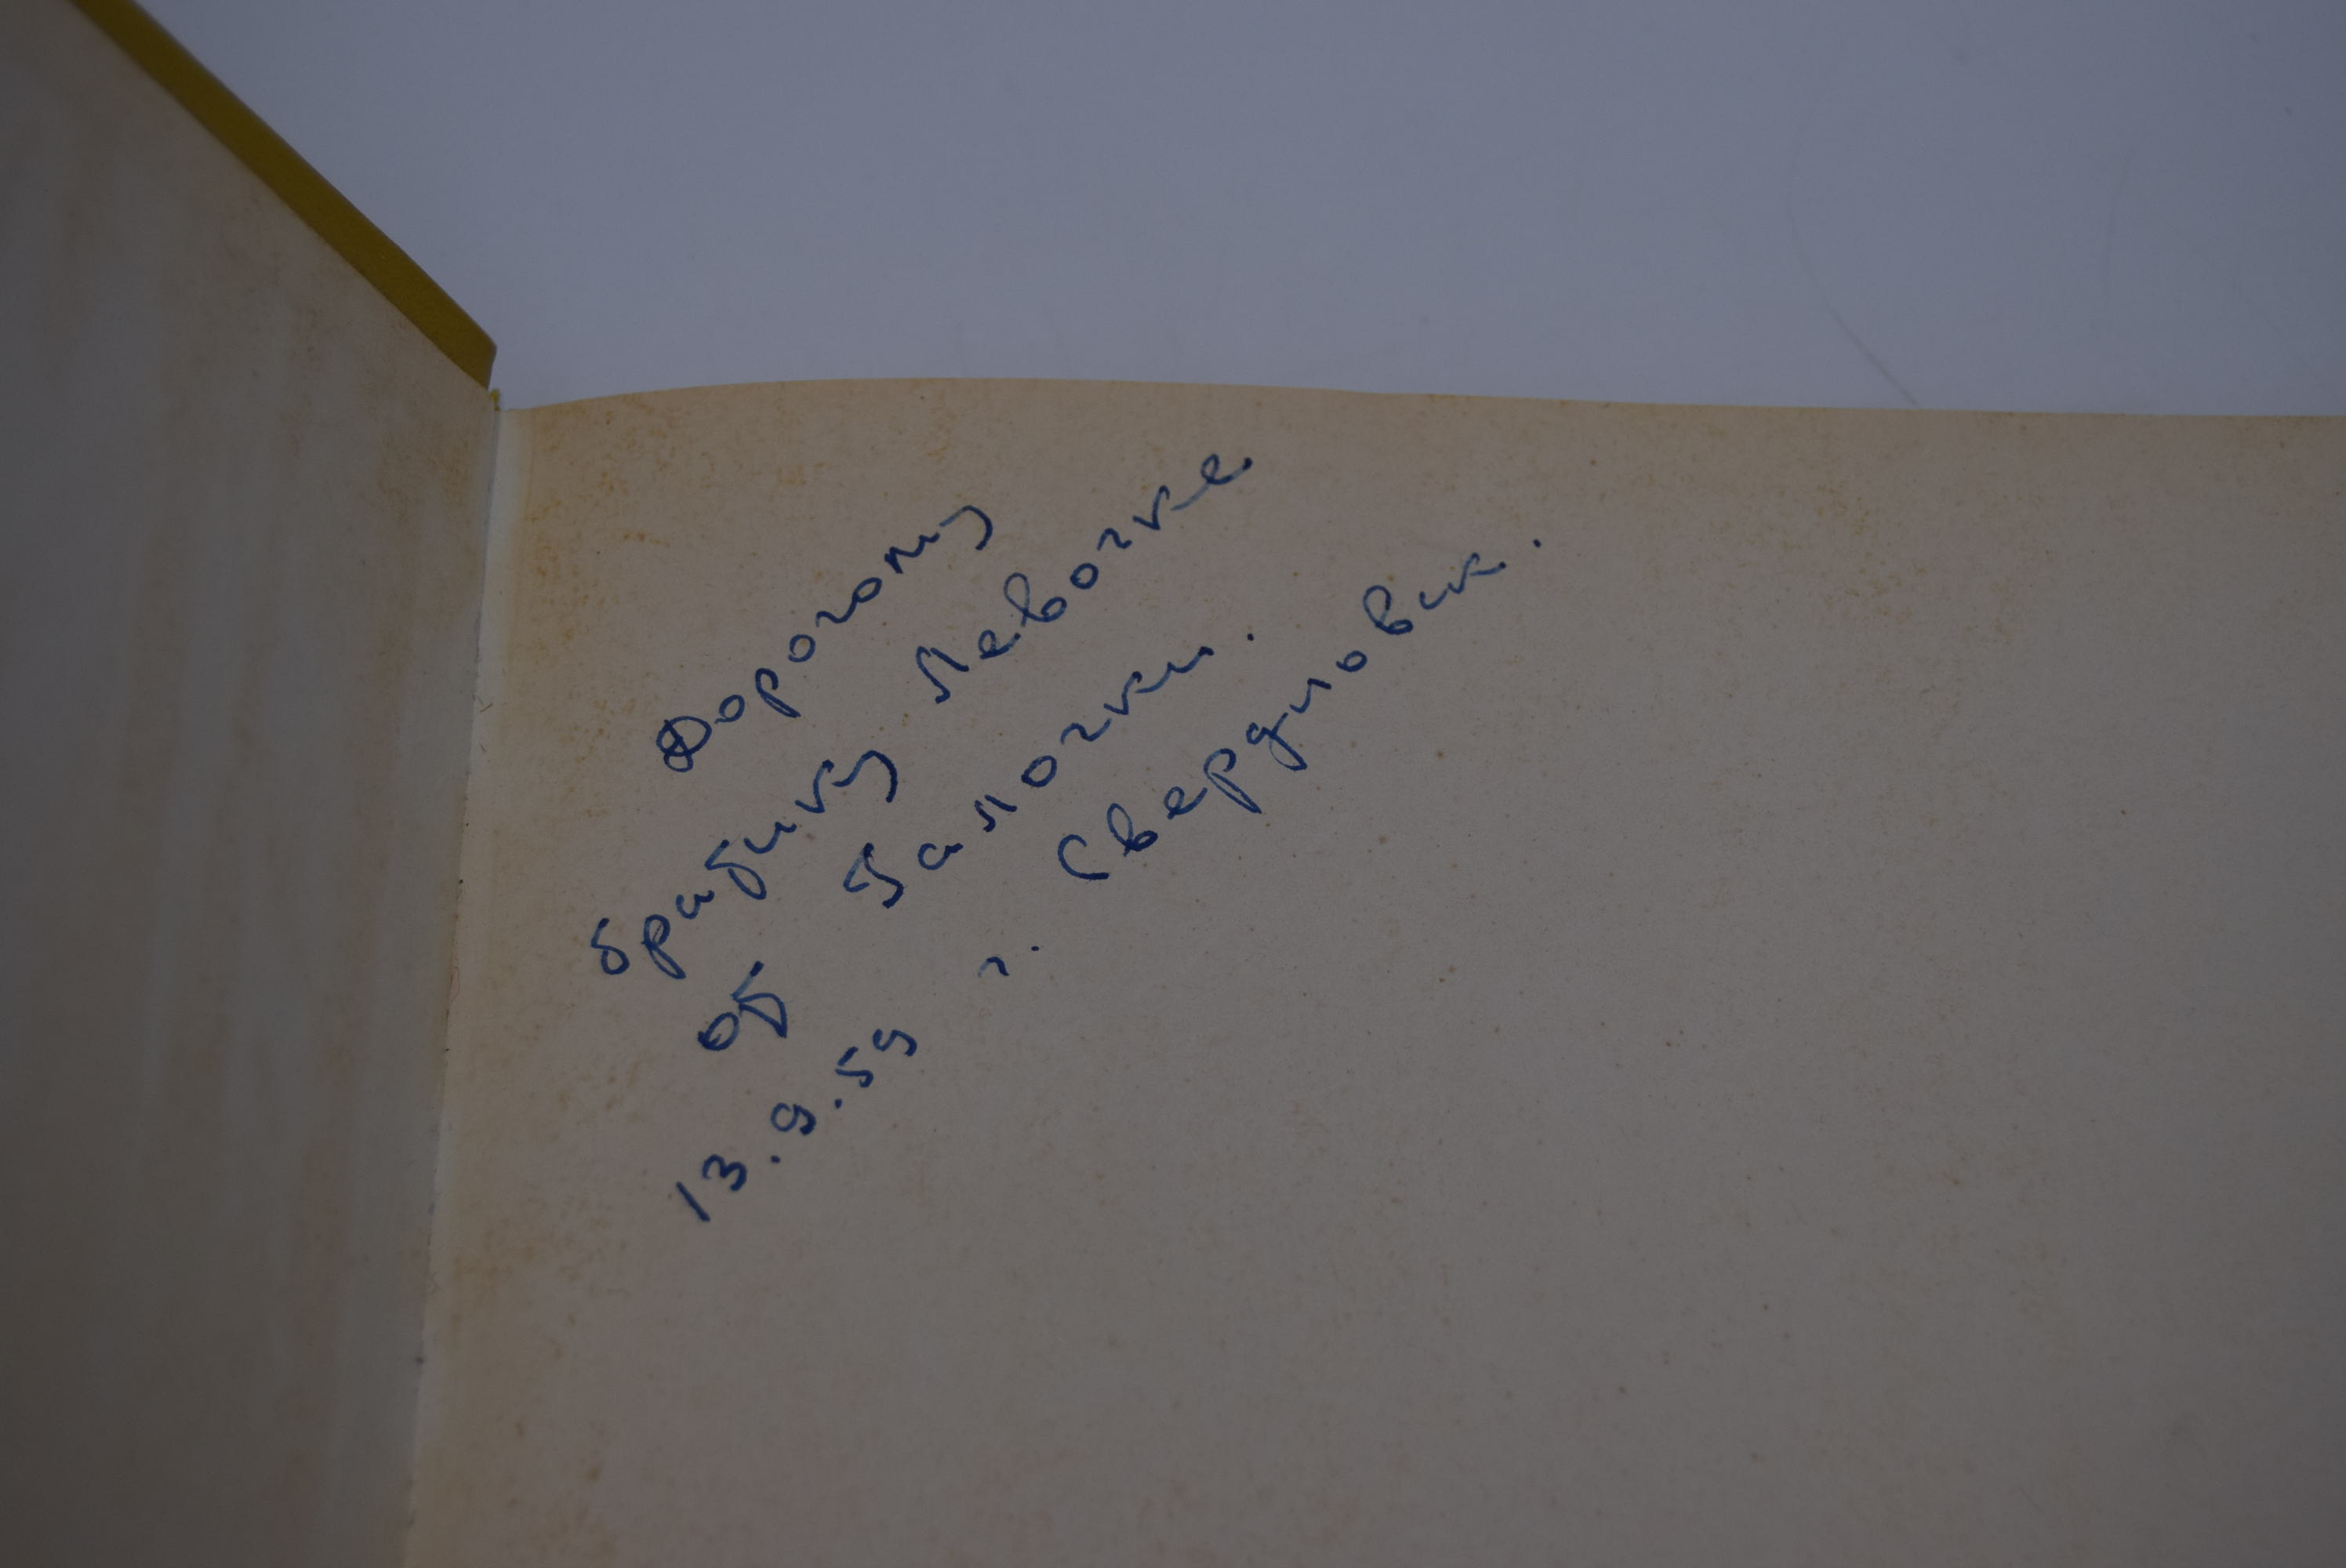 Дорогому
братику Левочке
от Галочки.
13.9.59 г. Свердловск.